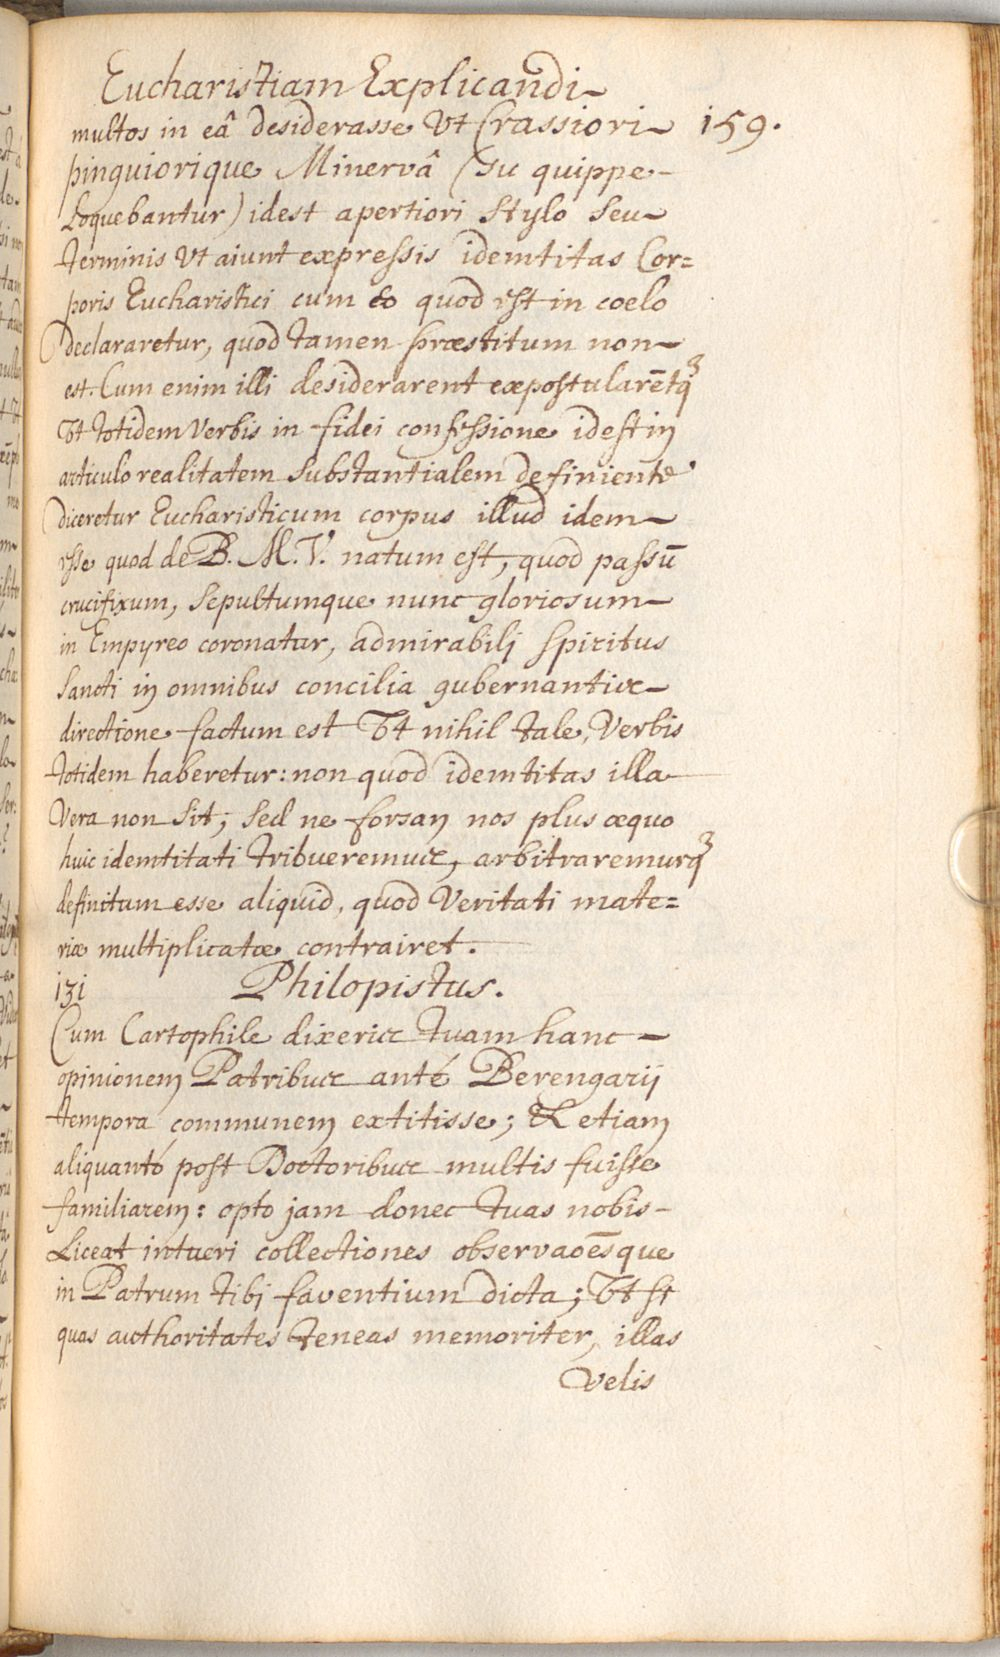 Eucharistiam Explicandi
multos in eâ desiderasse Vt Crassiori 159.
pinguiorique Minervâ (su quippe
loquebantur) idest apertiori Stylo Seu
terminis Vt aiunt expressis idemtitas Cor=
poris Eucharistici cum eo quod est in coelo
declararetur, quod tamen præstitum non
est. Cum enim illi desiderarent expostularētqꝫ
Vt totidem Verbis in fidei confessione idest in
articulo realitatem Substantialem definiente
diceretur Eucharisticum corpus illud idem
esse quod de B. M. V. natum est, quod passū
crucifixum, Sepultumque nunc gloriosum
in Empyreo coronatur, admirabili Spiritus
Sancti in omnibus concilia gubernantis
directione factum est Vt nihil tale, Verbis
totidem haberetur: non quod idemtitas illa
Vera non Sit; Sed ne forsan nos plus æquo
huic idemtitati tribueremus, arbitraremurqꝫ
definitum esse aliquid, quod Veritati mate=
riæ multiplicatæ contrairet.
131 Philopistus.
Cum Cartophile dixeris tuam hanc
opinionem Patribus anté Berengarij
tempora communem extitisse; & etiam
aliquantó post Doctoribus multis fuisse
familiarem: opto jam donec tuas nobis
Liceat intueri collectiones observaoēsque
in Patrum tibi faventium dicta; Vt si
quas authoritates teneas memoriter, illas
Velis